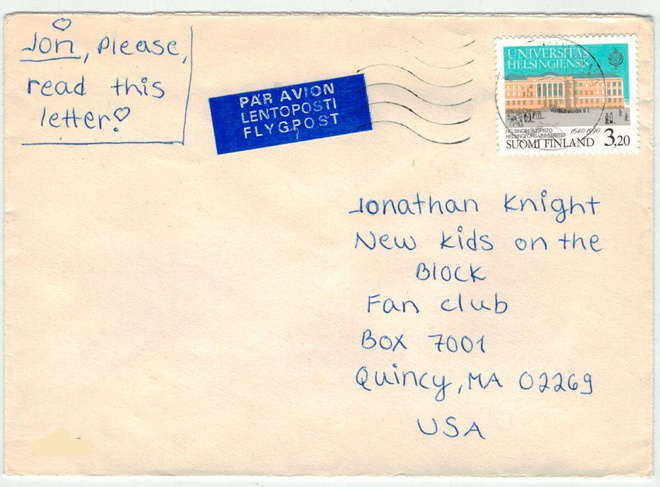 Jon, please,
read this
letter!
PAR AVION
LENTOPOSTI
FLYGPOST
UNIVERSITAS
HELSINGIENSIS
HELSINGIN YLIOPISTO
HELSINGFORS UNIVERSITET
1640-1990
SUOMI FINLAND 3,20
Jonathan Knight
New Kids on the
Block
Fan club
Box 7001
Quincy, MA 02269
USA